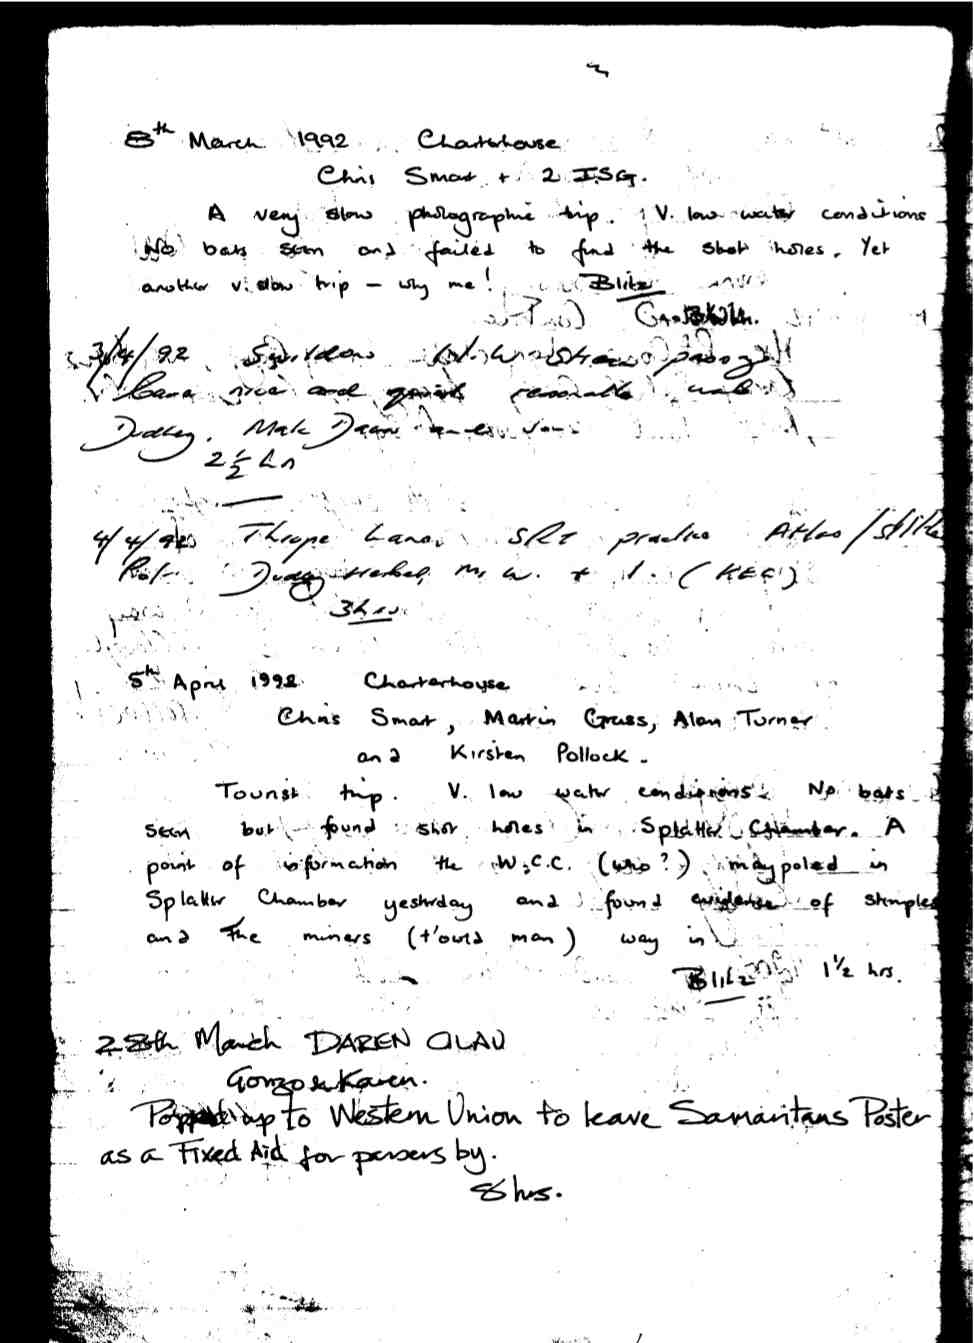 8th March 1992 Charterhouse
Chris Smart + 2 I.S.G.
A very slow photographic trip. V. low water conditions
No bats seen and failed to find the shot holes. Yet
another v. slow trip – why me! Blitz
3/4/92 Swildons
Cave nice and reasonable
Dudley. Mak
2½ hrs
4/4/92 Thrupe Lane. SRT practice Atlas /
+ 1. (KEG)
3hrs.
5th April 1992 Charterhouse
Chris Smart, Martin Grass, Alan Turner
and Kirsten Pollock.
Tourist trip. V. low water conditions. No bats
seen but found shot holes in Splatter Chamber. A
point of information the W.C.C. (who?) maypoled in
Splatter Chamber yesterday and found evidence of stemples
and the miners (t'ould man) way in
Blitz 1½ hrs.
28th March DAREN CILAU
Gonzo & Karen.
Popped up to Western Union to leave Samaritans Poster
as a Fixed Aid for persers by.
8 hrs.